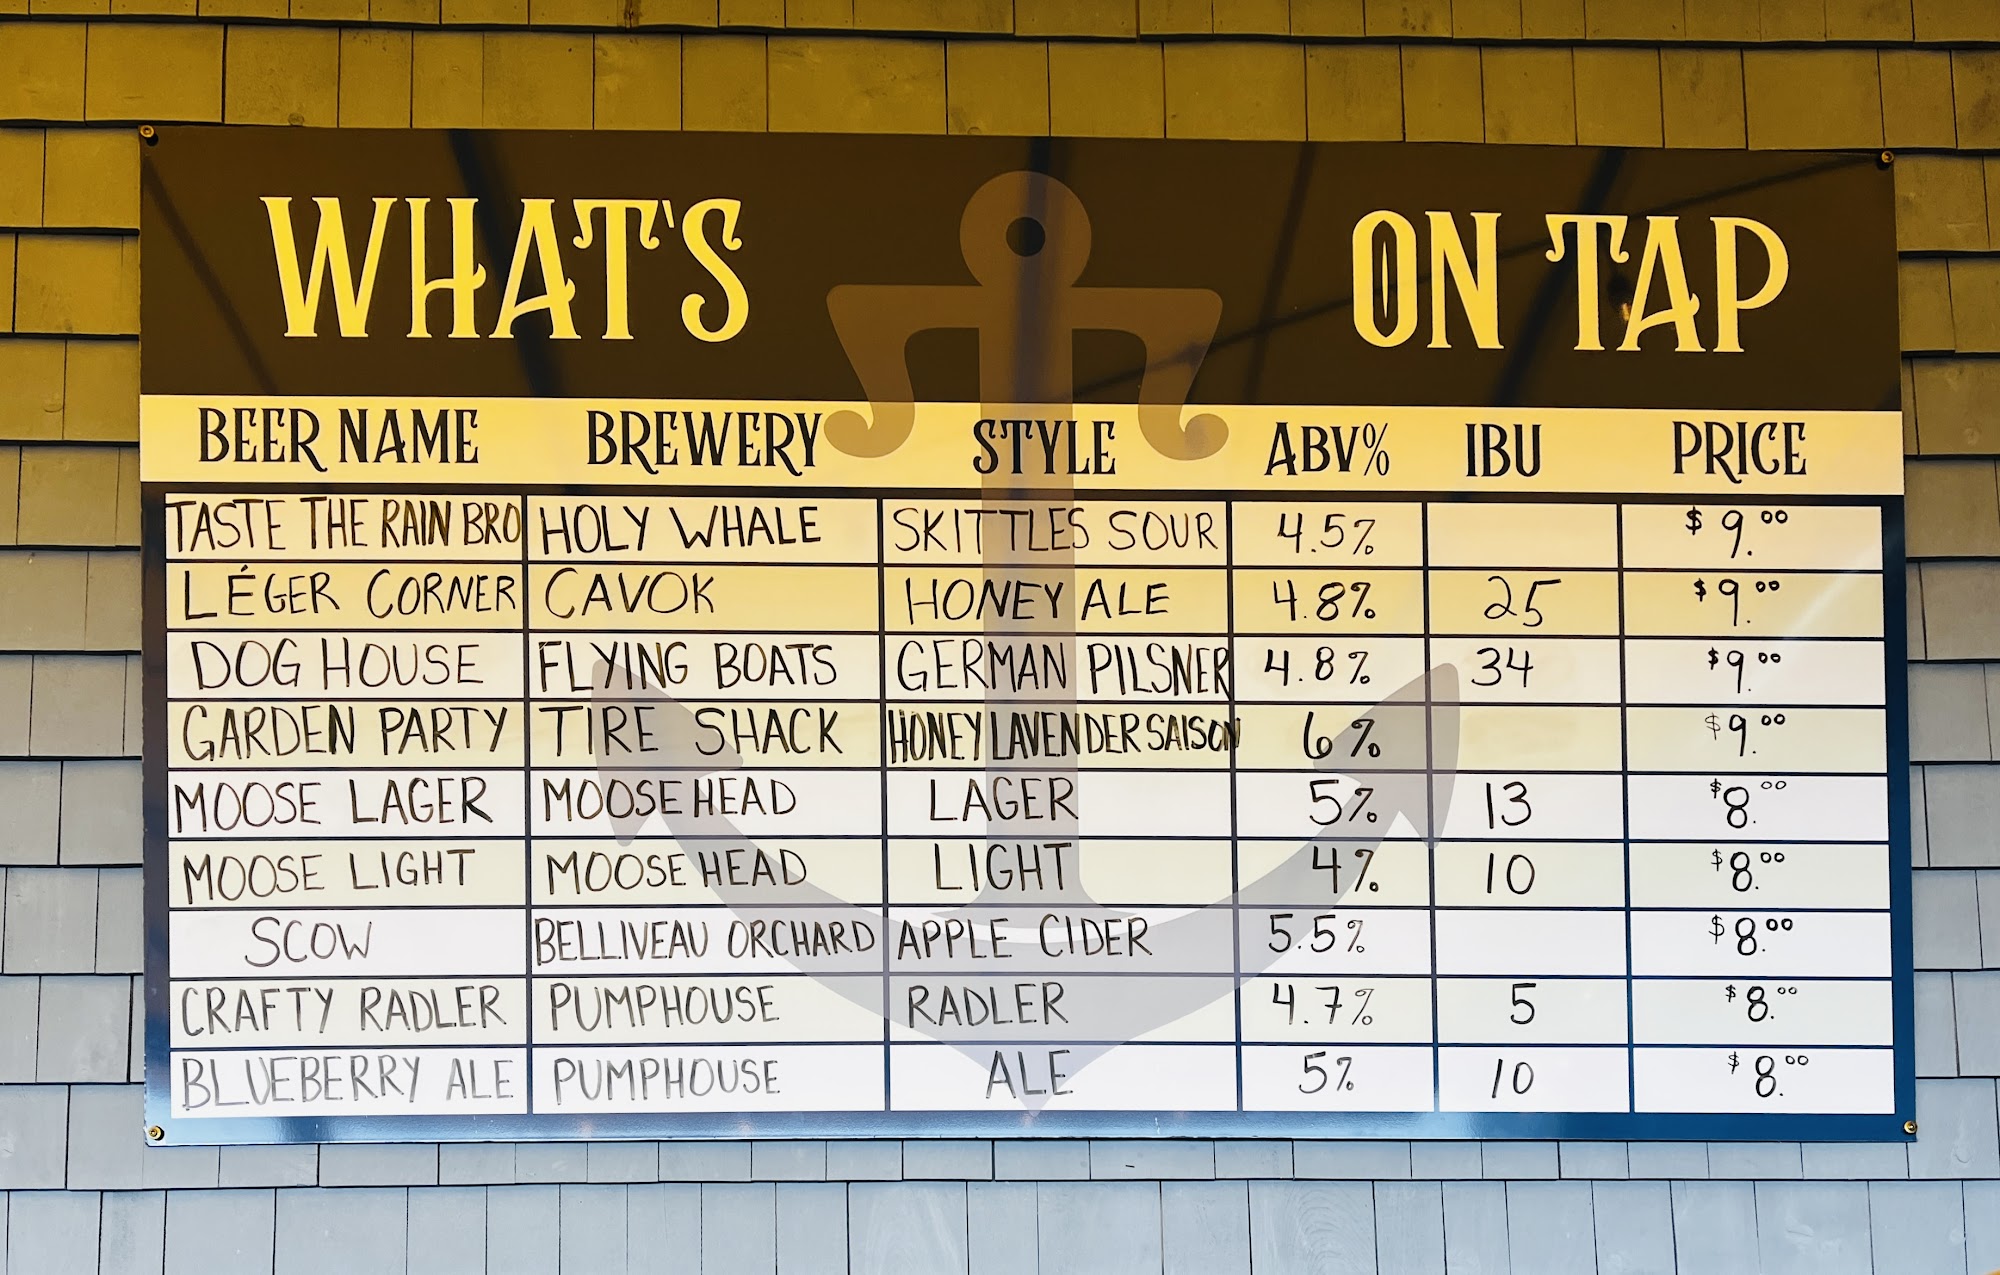 WHAT'S ON TAP
BEER NAME BREWERY STYLE ABV% IBU PRICE
TASTE THE RAIN BRO HOLY WHALE SKITTLES SOUR 4.5% $9.00
LÉGER CORNER CAVOK HONEY ALE 4.8% 25 $9.00
DOG HOUSE FLYING BOATS GERMAN PILSNER 4.8% 34 $9.00
GARDEN PARTY TIRE SHACK HONEY LAVENDER SAISON 6% $9.00
MOOSE LAGER MOOSEHEAD LAGER 5% 13 $8.00
MOOSE LIGHT MOOSEHEAD LIGHT 4% 10 $8.00
SCOW BELLIVEAU ORCHARD APPLE CIDER 5.5% $8.00
CRAFTY RADLER PUMPHOUSE RADLER 4.7% 5 $8.00
BLUEBERRY ALE PUMPHOUSE ALE 5% 10 $8.00